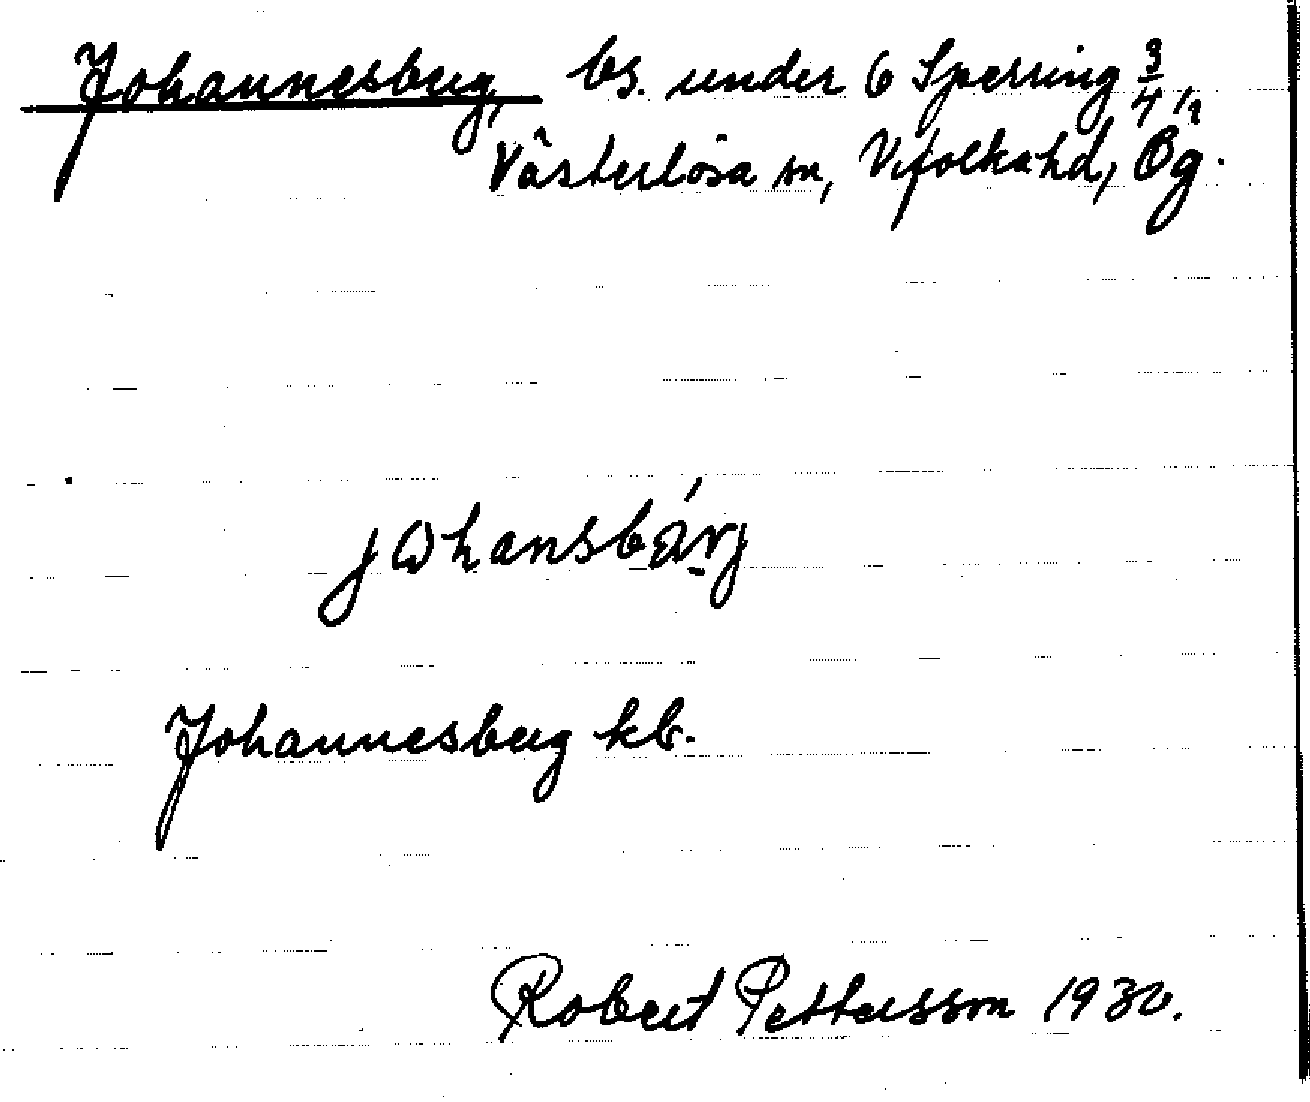 Johannesberg, bs. under 6 Sperring 3/4 h
Västerlösa sn, Vifolka hd, Ög.
jωhansbárj
Johannesberg kb.
Robert Pettersson 1930.